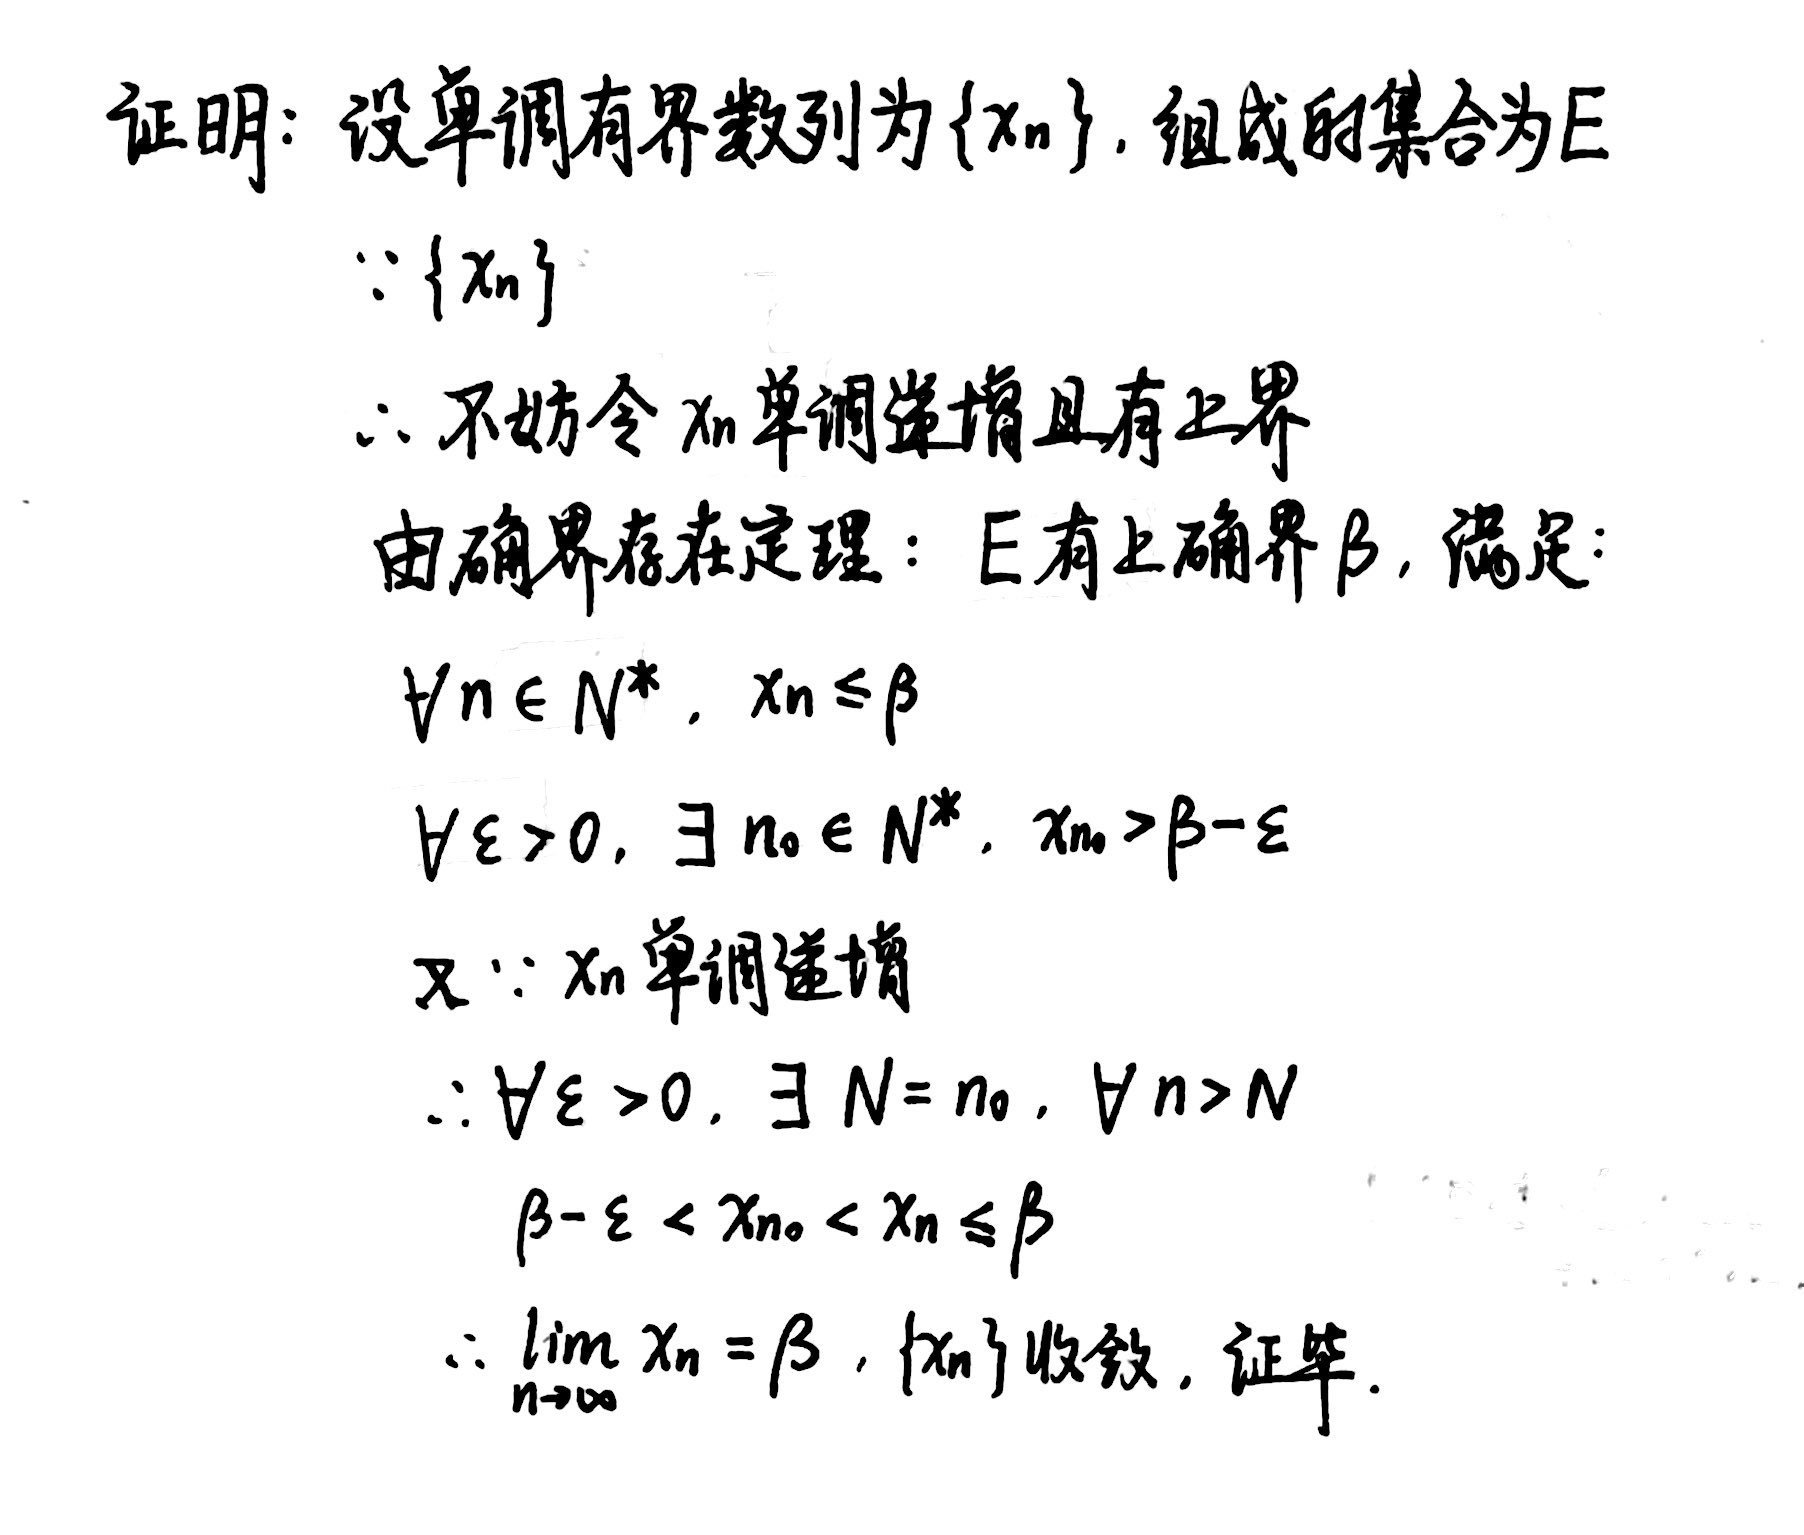 证明：设单调有界数列为{xn}，组成的集合为E
∵{xn}
∴ 不妨令 xn 单调递增且有上界
由确界存在定理：E有上确界β，满足：
∀n∈N*，xn≤β
∀ε>0，∃n₀∈N*，xn₀>β-ε
又∵xn单调递增
∴∀ε>0，∃N=n₀，∀n>N
β-ε<xn₀<xn≤β
∴ lim n→∞ xn=β，{xn}收敛，证毕.